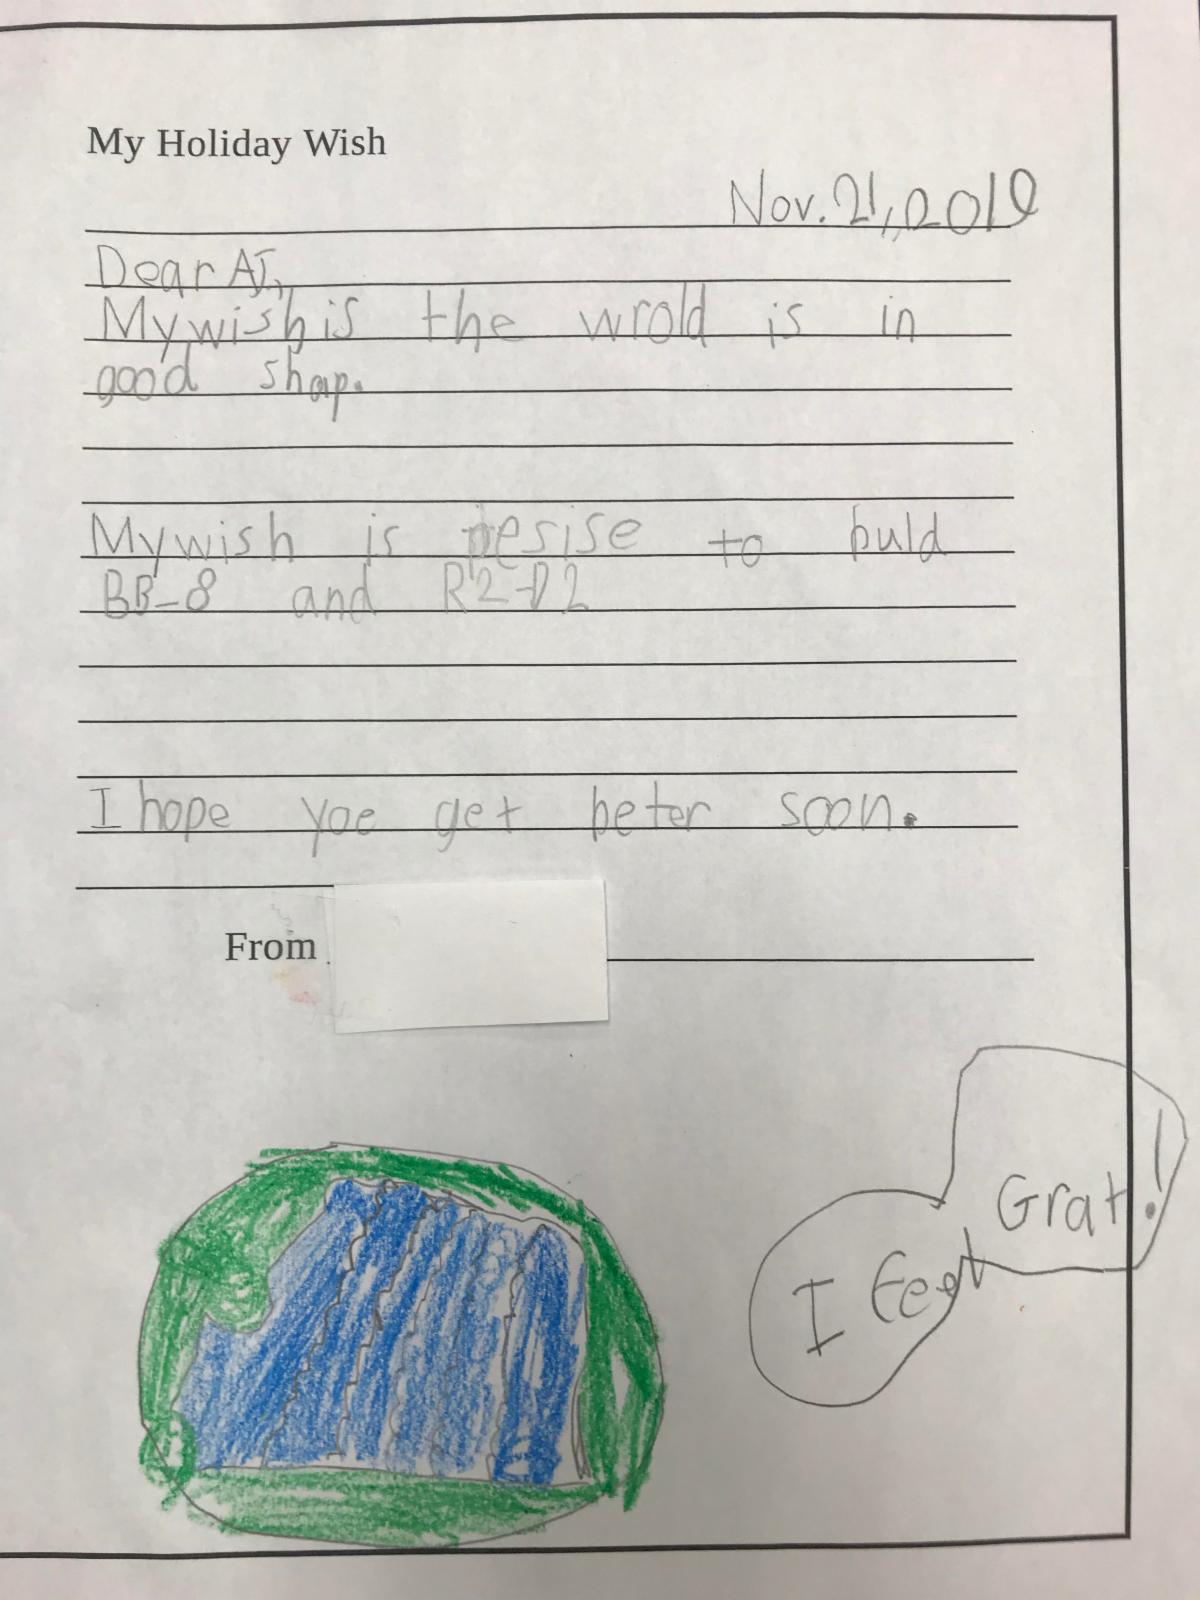 My Holiday Wish
Nov. 21, 2019
Dear AJ,
My wish is the wrold is in
good shap.
My wish is pesise to buld
BB-8 and R2-D2
I hope yoe get beter soon.
From
I feel
Grat!